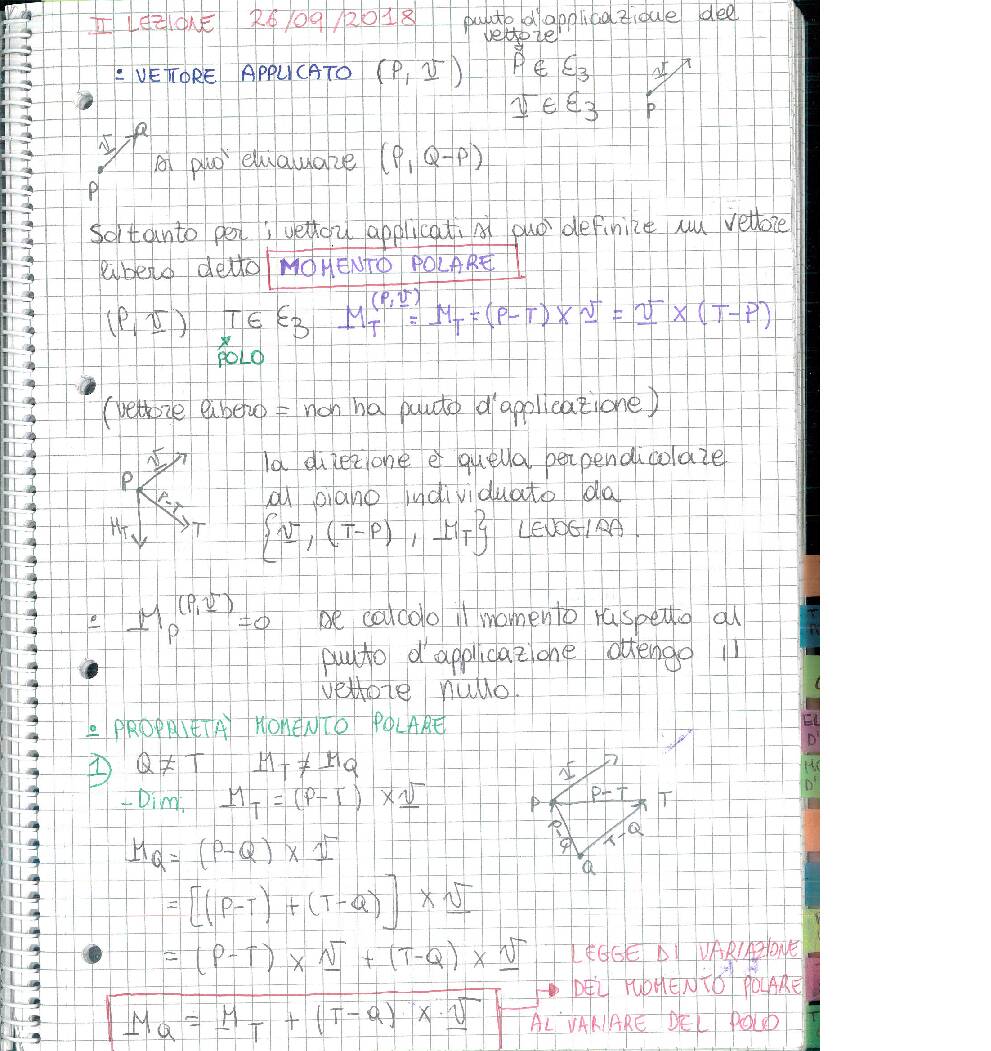 II LEZIONE 26/09/2018 punto d'applicazione del
vettore
• VETTORE APPLICATO (P, v) P ∈ E3
v ∈ E3
v
P
v Q
P
si può chiamare (P, Q-P)
Soltanto per i vettori applicati si può definire un vettore
libero detto MOMENTO POLARE
(P, v) T ∈ E3 M_T^(P,v) = M_T = (P-T) × v = v × (T-P)
POLO
(vettore libero = non ha punto d'applicazione)
v
P
P-T
M_T T
la direzione è quella perpendicolare
al piano individuato da
{v, (T-P), M_T} LEVOGIRA.
• M_P^(P,v) = 0 se calcolo il momento rispetto al
punto d'applicazione ottengo il
vettore nullo.
• PROPRIETÀ MOMENTO POLARE
1) Q ≠ T M_T ≠ M_Q
- Dim. M_T = (P-T) × v
v
P P-T T
P-Q T-Q
Q
M_Q = (P-Q) × v
= [(P-T) + (T-Q)] × v
= (P-T) × v + (T-Q) × v
M_Q = M_T + (T-Q) × v
LEGGE DI VARIAZIONE
DEL MOMENTO POLARE
AL VARIARE DEL POLO